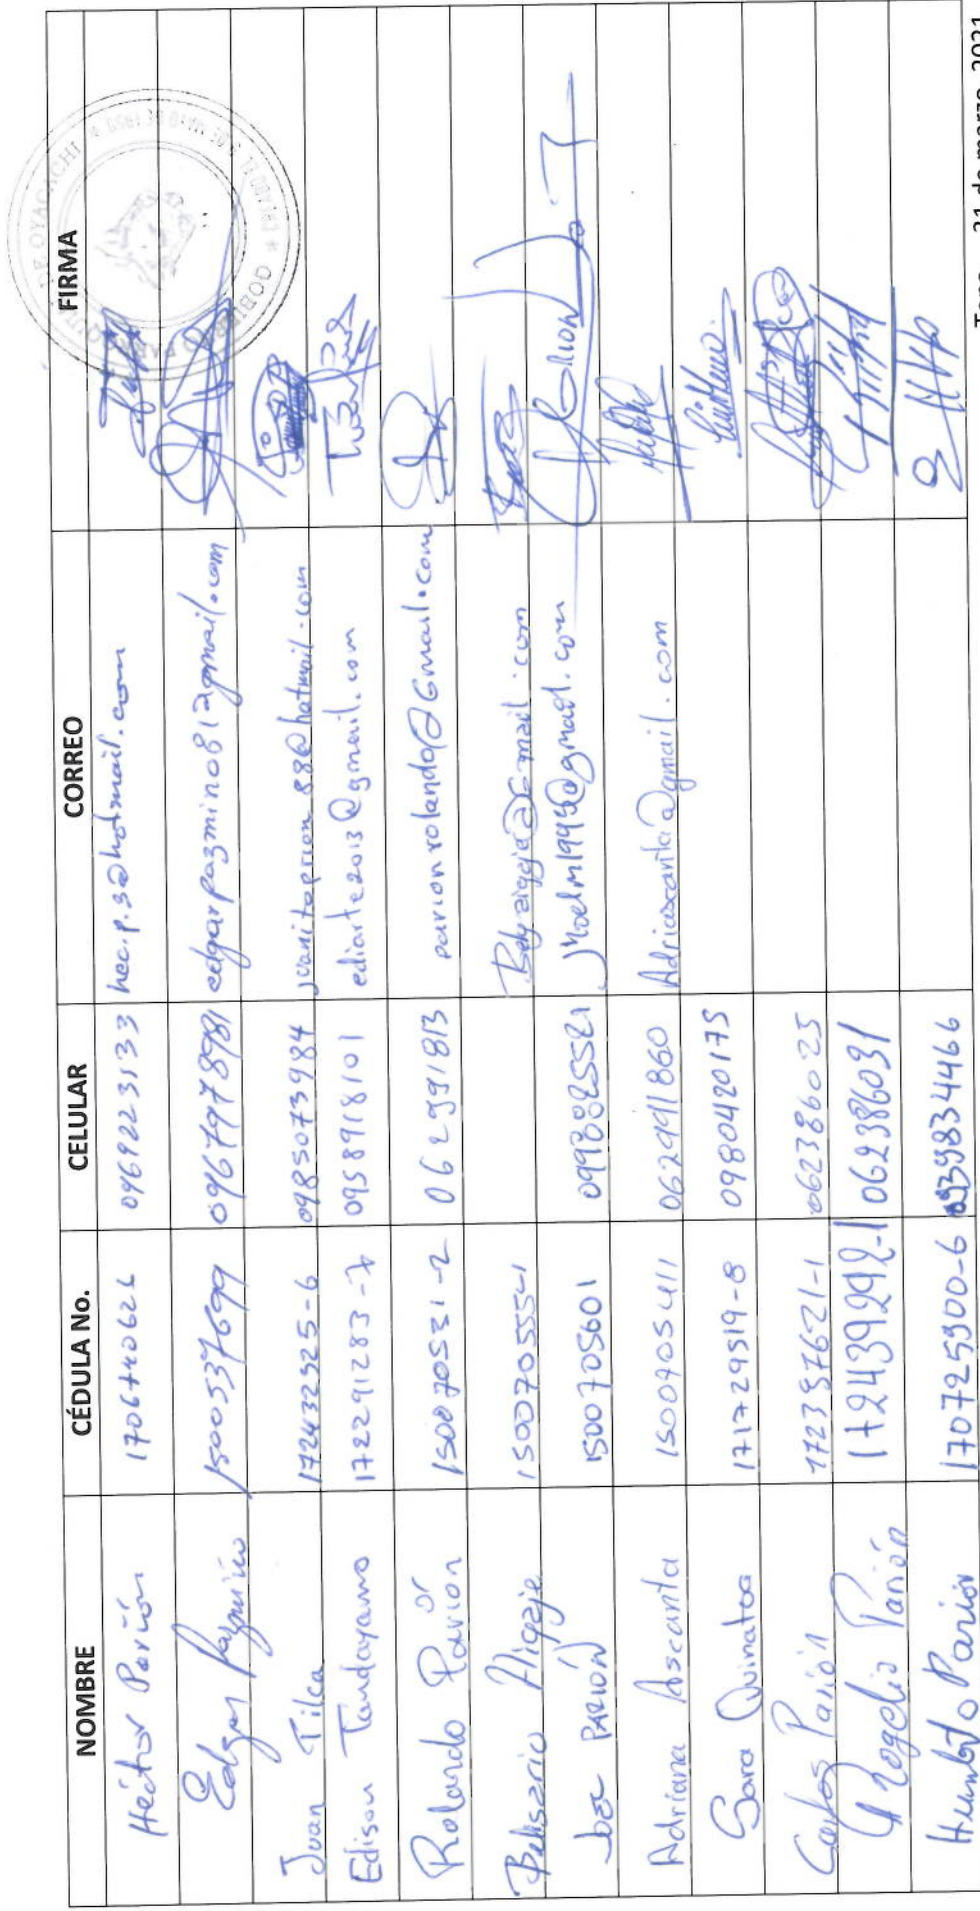 NOMBRE CÉDULA No. CELULAR CORREO FIRMA
Héctor Parión 1706740626 0969223133 hec.p.3@hotmail.com
Edgar Pazmiño 1500537699 0967978981 edgarpazmino81@gmail.com
Juan Tilca 172432325-6 0985073984 juanitoparion.88@hotmail.com
Edison Tandayamo 172291283-7 0958918101 ediarte2013@gmail.com
Rolando Parión 150070531-2 062991813 parionrolando@Gmail.com
Belisario Aigaje 150070555-1
Joel PARIÓN 1500705601 0998825521 Jhoelm1995@gmail.com
Adriana Ascanta 1500905411 062991860 Adriascanta@gmail.com
Sara Quinatoa 171729519-8 0980420175
Carlos Parión 172397621-1 062386025
Rogelio Parión 172439292-1 062386031
Humberto Parión 170725900-6 0939834466
31 de marzo, 2021